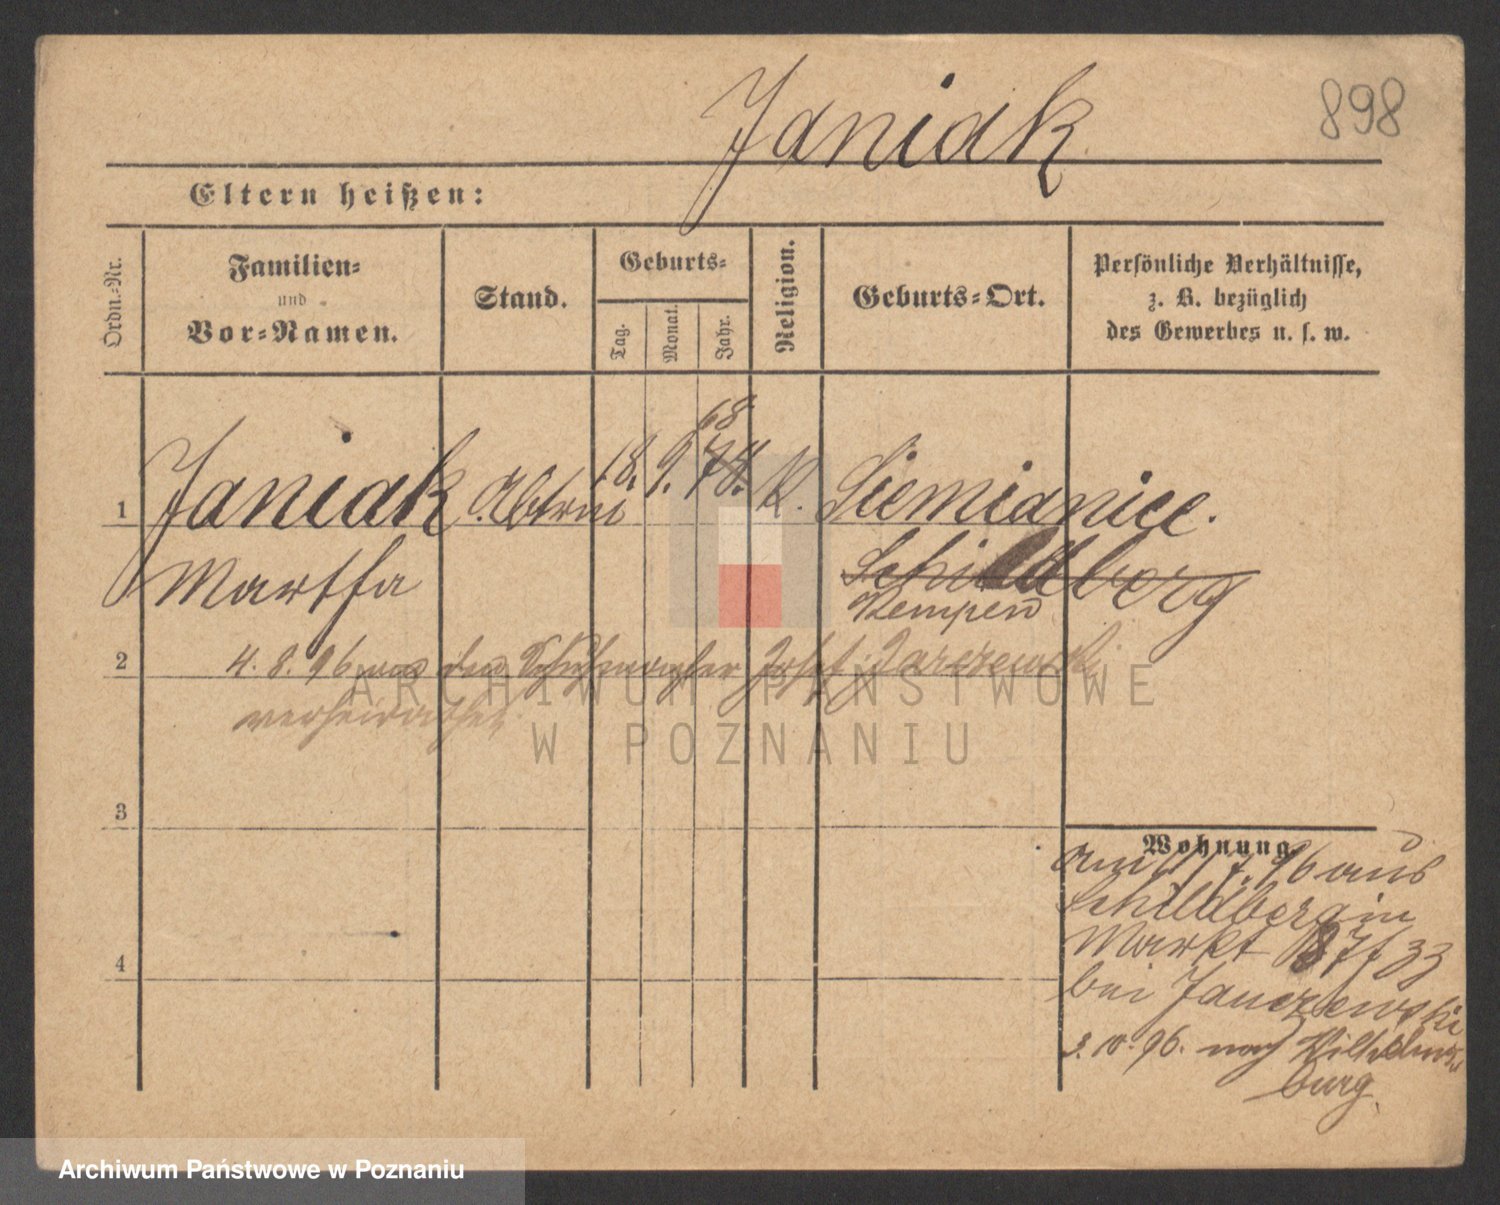 Janiak
898
Eltern heißen:
Ordn.-Nr.
Familien-
und
Vor-Namen.
Stand.
Geburts-
Tag.
Monat.
Jahr.
Religion.
Geburts-Ort.
Persönliche Verhältnisse,
z. B. bezüglich
des Gewerbes u. s. w.
68
1 Janiak 18. 9. 78. K. Siemianice.
Martha Schildberg
Kempen
2 4. 8. 96 den Schuhmacher Josef
verheirathet
3
Wohnung.
am 1/7. 96 aus
Schildberg in
Markt
bei Janczewski
4
3. 10. 96. nach Wilhelms
burg.
ARCHIWUM PAŃSTWOWE
W POZNANIU
Archiwum Państwowe w Poznaniu